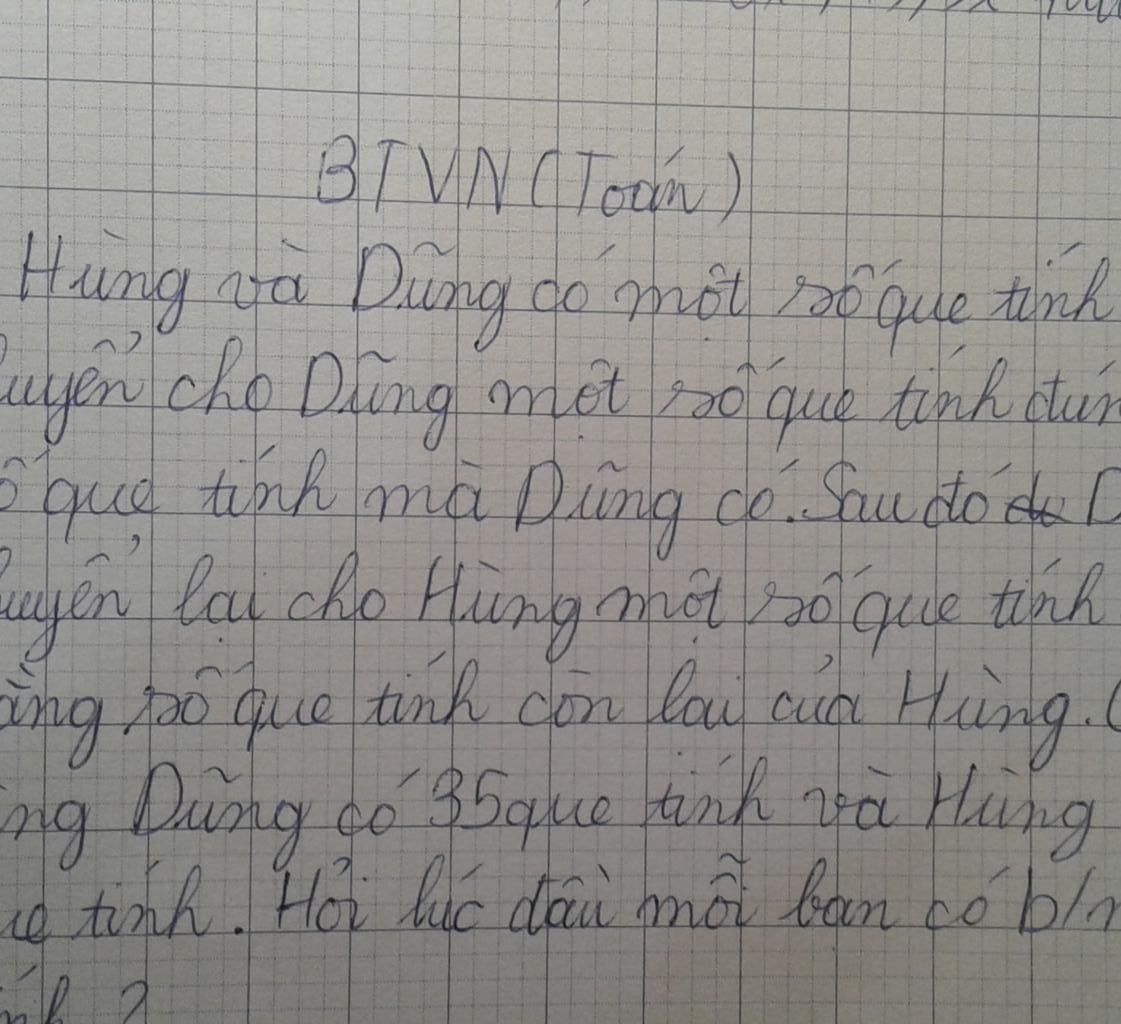 BTVN (Toán)
Hùng và Dũng có một số que tính
uyển cho Dũng một số que tính đún
ố que tính mà Dũng có. Sau đó D
uyển lại cho Hùng một số que tính
ằng số que tính còn lại của Hùng.
ng Dũng có 35 que tính và Hùng
ue tính. Hỏi lúc đầu mỗi bạn có b/n
ính ?